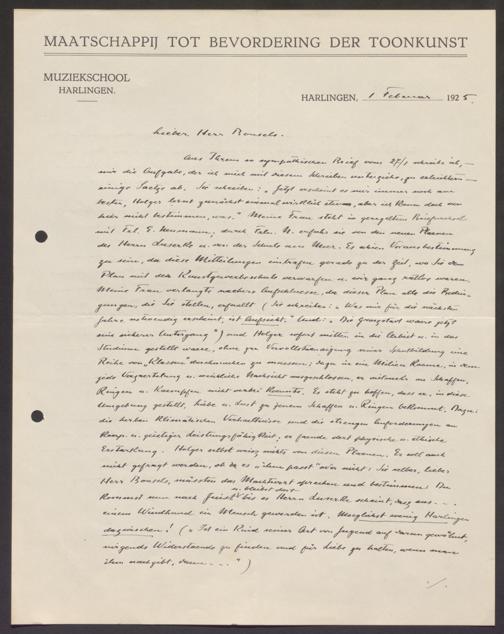 MAATSCHAPPIJ TOT BEVORDERING DER TOONKUNST
MUZIEKSCHOOL
HARLINGEN.
HARLINGEN, 1 Februar 1925.
Lieber Herr Bonsels.
Aus Ihrem so sympathischen Brief vom 27/1 schreibe ich, —
mir die Aufgabe, der ich mich mit diesem Schreiben unterziehe, zu erleichtern —
einige Sätze ab. Sie schreiben: „Jetzt scheint es mir immer noch am
besten, Holger lernt zunächst einmal wirklich etwas, aber ich kann doch von
hier nicht bestimmen, was." Meine Frau steht in geregeltem Briefwechsel
mit Frl. E. Neumann; durch Frl. N. erfuhr sie von den neuen Plänen
des Herrn Luserke u. von der Schule am Meer. Es schien Vorausbestimmung
zu sein, da diese Mitteilungen eintrafen gerade zu der Zeit, wo Sie den
Plan mit der Kunstgewerbeschule verwarfen u. wir ganz ratlos waren.
Meine Frau verlangte nähere Aufschlüsse, da dieser Plan alle die Bedin-
gungen, die Sie stellen, erfüllt (Sie schreiben: „Was mir für die nächsten
Jahre notwendig erscheint, ist Aufsicht." Und: „Die Grossstadt wäre jetzt
sein sicherer Untergang") und Holger sofort mitten in die Arbeit u. in das
Studium gestellt wäre, ohne zur Vervollständigung seiner Schulbildung eine
Reihe von „Klassen" durchmachen zu müssen; dazu in ein Milieu käme, in dem
jede Verzärtelung u. weibliche Nachsicht ausgeschlossen, er mitmuss im Schaffen,
Ringen u. Kämpfen nicht vorbei könnte. Es steht zu hoffen, dass er, in diese
Umgebung gestellt, Liebe u. Lust zu jenem Schaffen u. Ringen bekommt. Dazu:
die herben klimatischen Verhältnisse und die strengen Anforderungen an
Körper u. geistige Leistungsfähigkeit, er fände dort physische u. ethische
Erstarkung. Holger selbst weiss nichts von diesen Plänen. Er soll auch
nicht gefragt werden, ob es „ihm passt" oder nicht; Sie selber, lieber
Herr Bonsels, müssten das Machtwort sprechen und bestimmen: Du
kommst nun nach Juist u. bleibst dort bis es Herrn Luserke scheint, dass aus ...
einem Windhund ein Mensch geworden ist. Möglichst wenig Harlingen
dazwischen! („Ist ein Kind seiner Art von Jugend auf daran gewöhnt,
nirgends Widerstände zu finden und für Liebe zu halten, wenn man
ihm nachgibt, dann ...")
./.